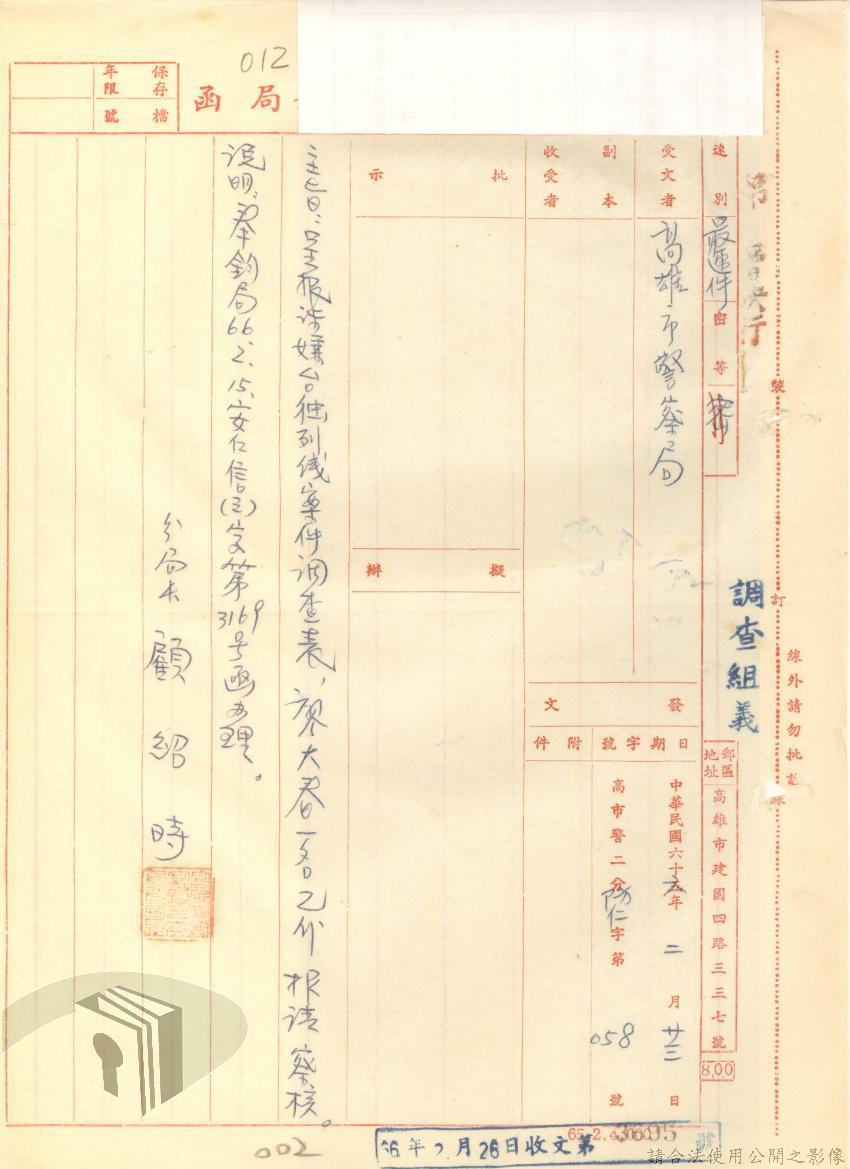 012
局函
保存年限
檔號
速別
最速件
密等
密
郵區
地址
高雄市建國四路三三七號
800
受文者
高雄市警察局
副本
收受者
批示
擬辦
發文
日期
字號
附件
中華民國六十六年二月廿三日
高市警二分防仁字第058號
主旨：呈報涉嫌台獨列線案件調查表，廖大春一名乙份報請察核。
說明：奉鈞局66.2.15.安仁信(三)字第3169号函办理。
分局長顧紹時
調查組義
裝
訂
線
線外請勿批
66年2月26日收文第3695號
65.2.4,000
002
請合法使用公開之影像